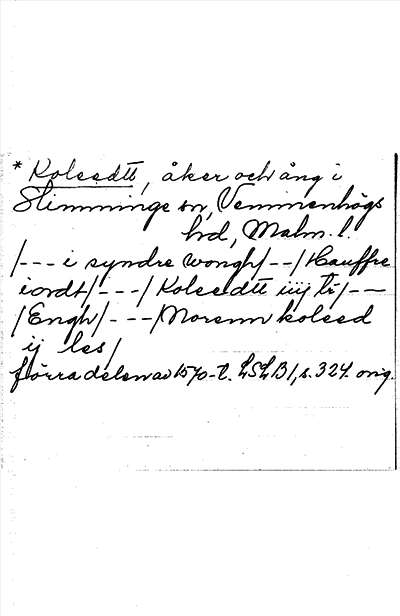 * Kolsedtt, åker och äng i
Slimminge sn, Vemmenhögs
hd, Malm. l.
/--- i syndre wongh/--/Hauffre
iordt/---/Kolsedtt iiij tr/--
/Engh/---/Morsenn kolsed
ij les/
förra delen av 1570-t. LSLB1, s. 324. orig.